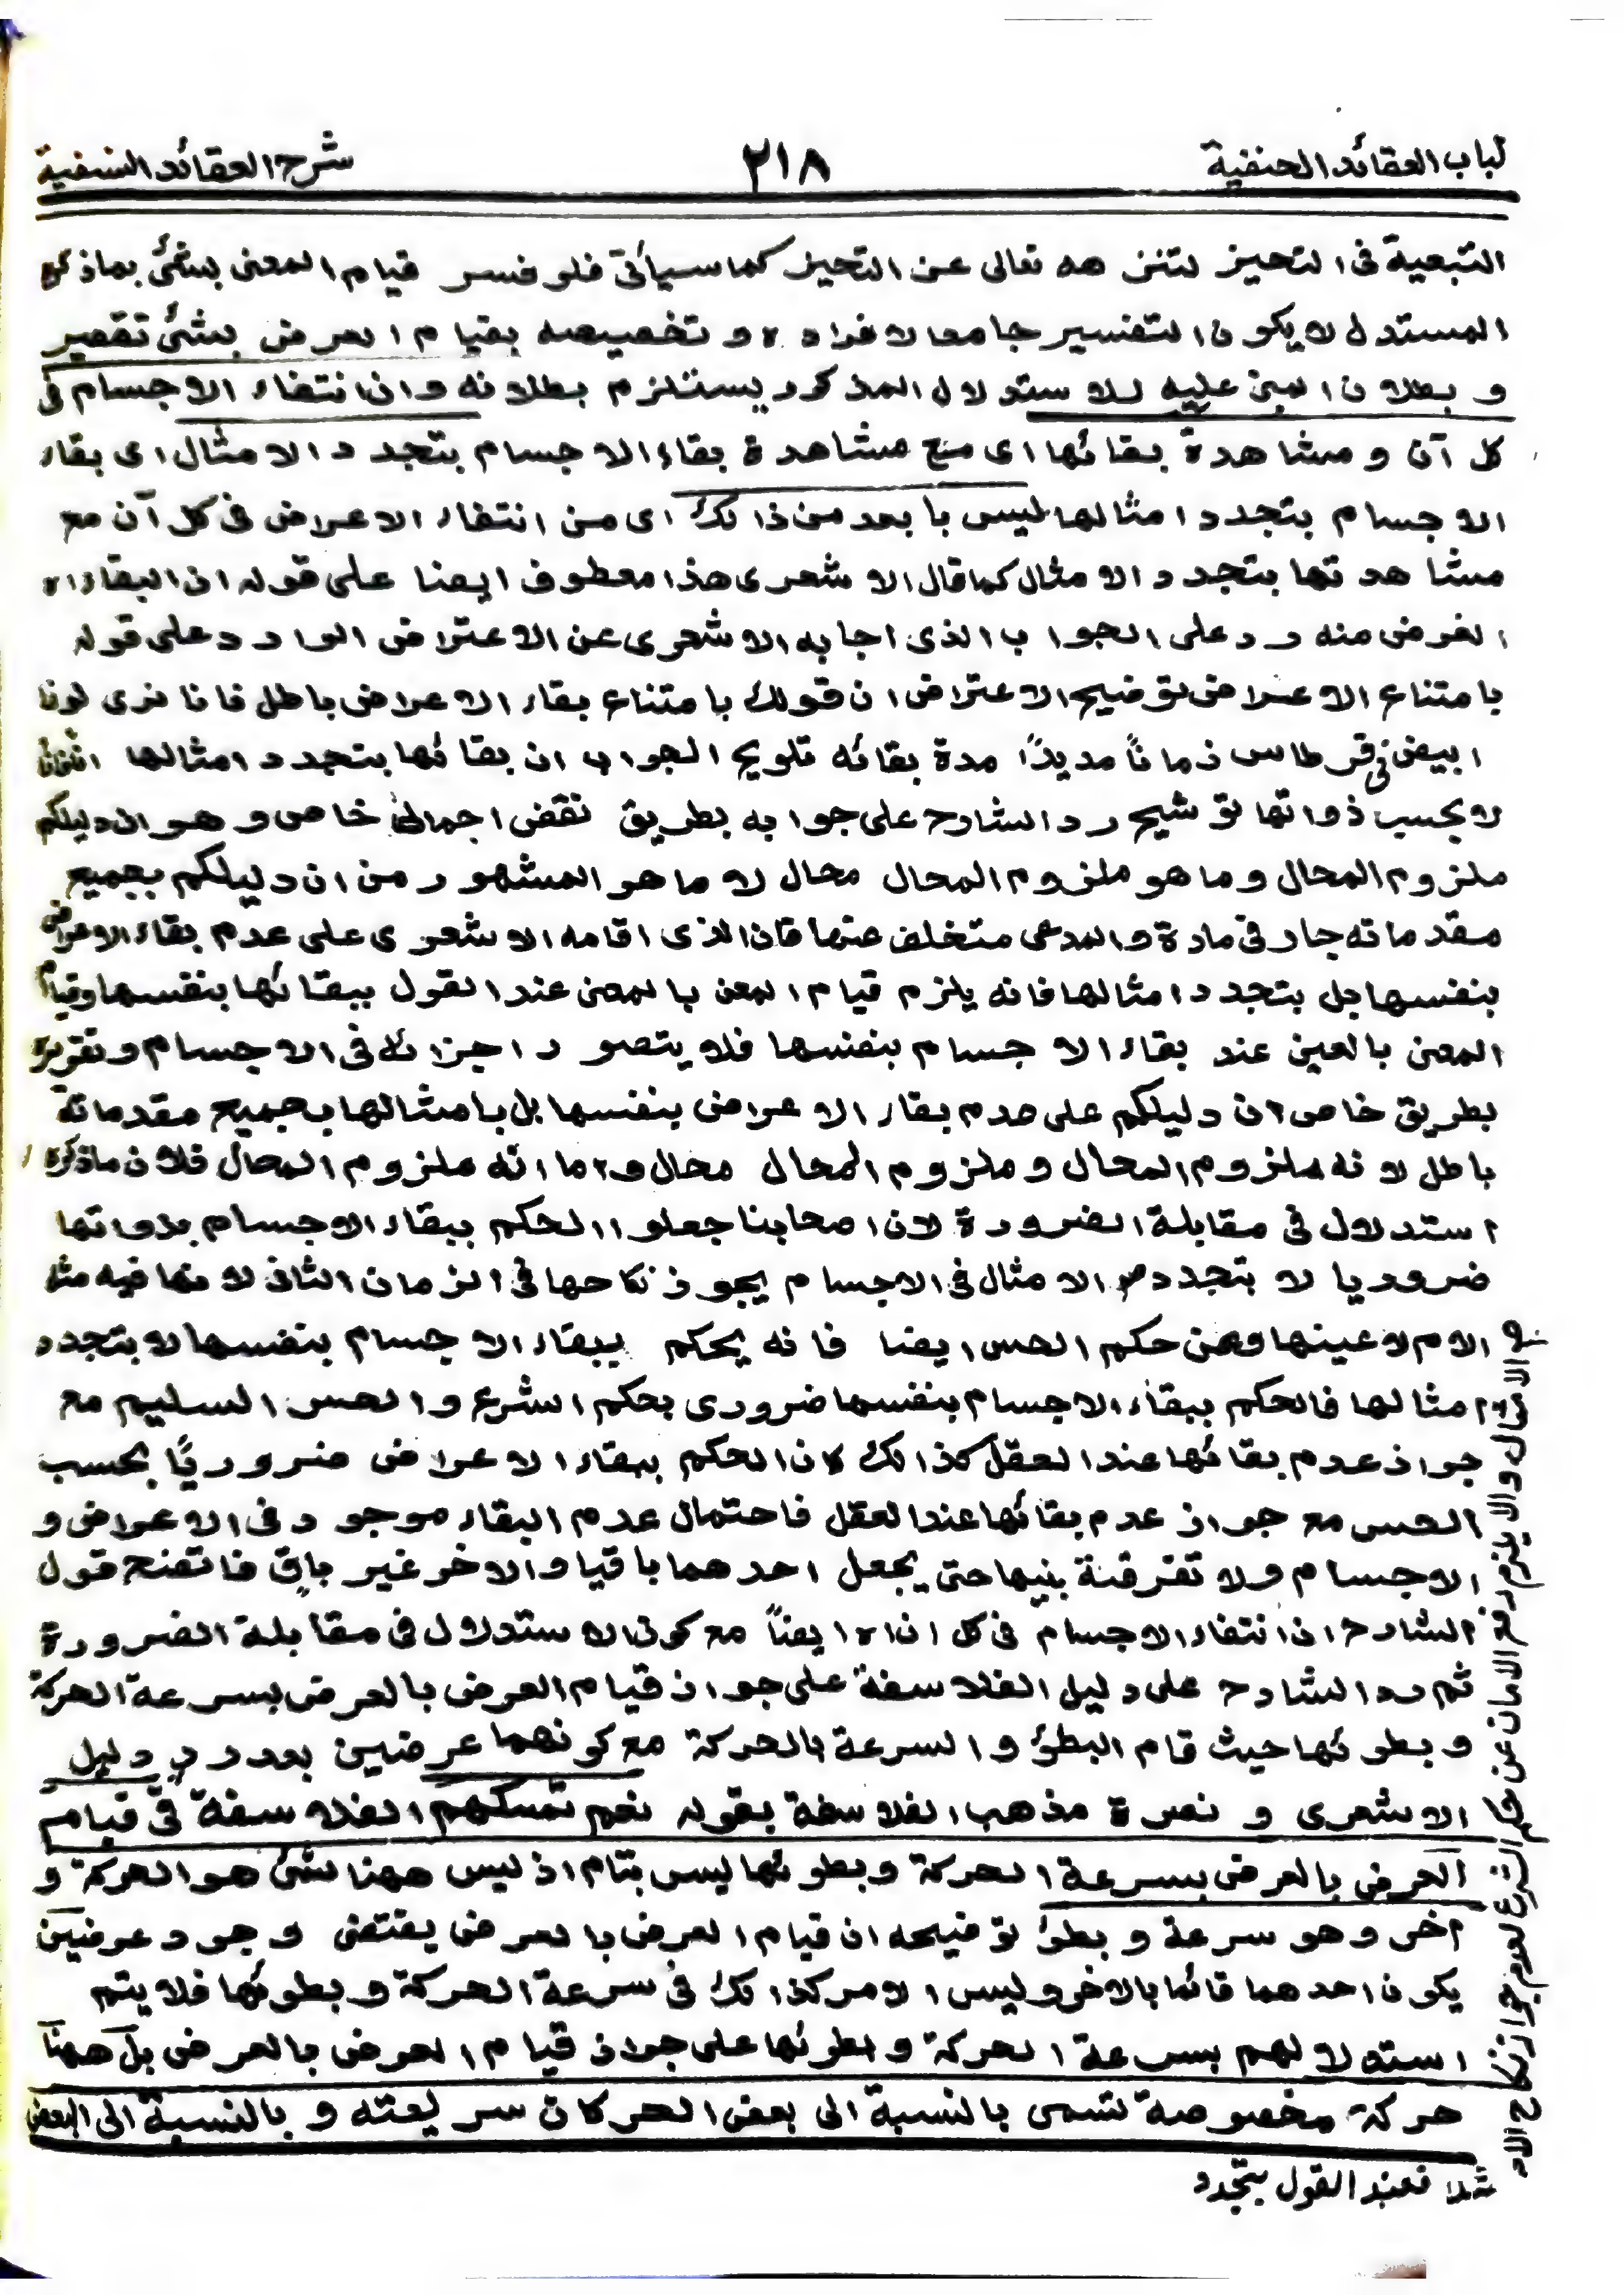 لباب العقائد الحنفية ٢١٨ شرح العقائد النسفية
التبعية فى التحيز لتنزهه تعالى عن التحيز كما سيأتى فلو فسر قيام المعنى بشئ بماذكره
المستدل لا يكون التفسير جامعا لافراده و تخصيصه بقيام العرض بشئ تقصير
و بطلان المبنى عليه للاستدلال المذكور يستلزم بطلانه و ان انتفاء الاجسام فى
كل آن و مشاهدة بقائها اى منع مشاهدة بقاء الاجسام بتجدد الامثال اى بقاء
الاجسام بتجدد امثالها ليس بابعد من ذالك اى من انتفاء الاعراض فى كل آن مع
مشاهدتها بتجدد الامثال كما قال الاشعرى هذا معطوف ايضا على قوله ان البقاء اه
الغرض منه رد على الجواب الذى اجابه الاشعرى عن الاعتراض الوارد على قوله
بامتناع الاعراض توضيح الاعتراض ان قولك بامتناع بقاء الاعراض باطل فانا نرى لونا
ابيض فى قرطاس زماناً مديدًا مدة بقائه تلويح الجواب ان بقائها بتجدد امثالها
لا بحسب ذواتها توشيح رد الشارح على جوابه بطريق نقض اجمالى خاص و هو ان دليلكم
ملزوم المحال و ما هو ملزوم المحال محال لا ما هو المشهور من ان دليلكم بجميع
مقدماته جار فى مادة و المدعى متخلف عنها فان الذى اقامه الاشعرى على عدم بقاء الاعراض
بنفسها بل بتجدد امثالها فانه يلزم قيام المعنى بالمعنى عند القول ببقائها بنفسها وقيام
المعنى بالعين عند بقاء الاجسام بنفسها فلا يتصور اجرائه فى الاجسام و تقريره
بطريق خاص ان دليلكم على عدم بقاء الاعراض بنفسها بل بامثالها بجميع مقدماته
باطل لانه ملزوم المحال و ملزوم المحال محال و اما انه ملزوم المحال فلان ماذكره
استدلال فى مقابلة الضرورة لان اصحابنا جعلوا الحكم ببقاء الاجسام بذواتها
ضروريا لا بتجدد الامثال فى الاجسام يجوز نكاحها فى الزمان الثانى لانها فيه مثل
الام لا عينها وعن حكم الحس ايضا فانه يحكم ببقاء الاجسام بنفسها لا بتجدد
امثالها فالحكم ببقاء الاجسام بنفسها ضرورى بحكم الشرع و الحس السليم مع
جواز عدم بقائها عند العقل كذالك كان الحكم ببقاء الاعراض ضروريًا بحسب
الحس مع جواز عدم بقائها عند العقل فاحتمال عدم البقاء موجود فى الاعراض و
الاجسام ولا تفرقة بينهما حتى يجعل احدهما باقيا والاخر غير باقٍ فاتضح قول
الشارح ان انتفاء الاجسام فى كل ان اه ايضاً مع كون الاستدلال فى مقابلة الضرورة
ثم رد الشارح على دليل الفلاسفة على جواز قيام العرض بالعرض بسرعة الحركة
و بطوئها حيث قام البطؤ و السرعة بالحركة مع كونهما عرضين بعد رد دليل
الاشعرى و نصرة مذهب الفلاسفة بقوله نعم تمسكهم الفلاسفة فى قيام
العرض بالعرض بسرعة الحركة و بطوئها ليس بتام اذ ليس ههنا شئ هو الحركة و
آخر و هو سرعة و بطؤ توضيحه ان قيام العرض بالعرض يقتضى وجود عرضين
يكون احدهما قائما بالاخر و ليس الامر كذالك فى سرعة الحركة و بطوئها فلا يتم
استدلالهم بسرعة الحركة و بطوئها على جواز قيام العرض بالعرض بل ههنا
حركة مخصوصة تسمى بالنسبة الى بعض الحركات سريعته و بالنسبة الى البعض
الامثال والا يلزم رفع الامان عن حكم الشرع لعدم جواز نكاح الام
مثلا فعند القول بتجدد